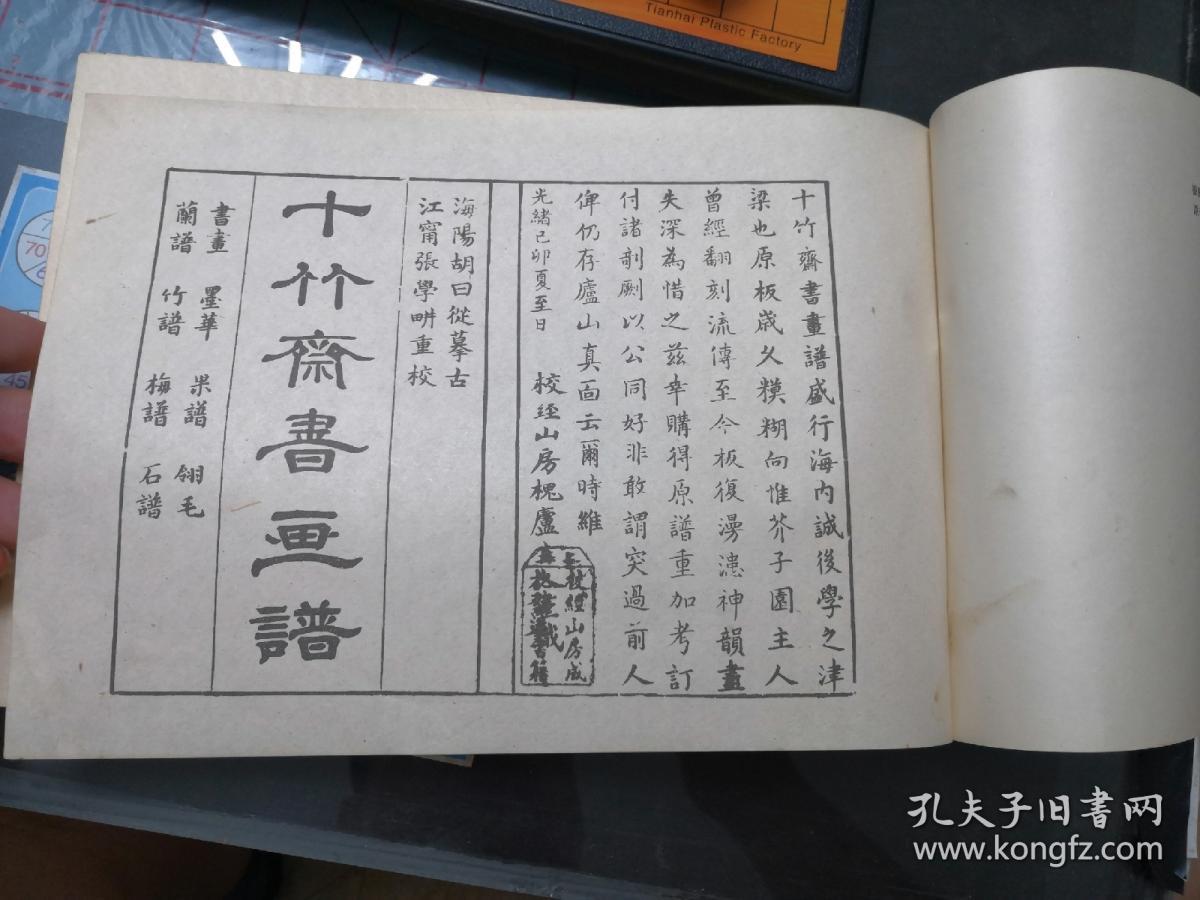 Tianhai Plastic Factory
十竹齋書畫譜盛行海内誠後學之津
梁也原板歲久糢糊向惟芥子園主人
曾經翻刻流傳至今板復漫漶神韻盡
失深為惜之兹幸購得原譜重加考訂
付諸剞劂以公同好非敢謂突過前人
俾仍存廬山真面云爾時維
光緒己卯夏至日 校經山房槐廬
校經山房成
海陽胡曰從摹古
江甯張學畊重校
十竹齋書画譜
書畫 墨華 果譜 翎毛
蘭譜 竹譜 梅譜 石譜
70
45
孔夫子旧书网
www.kongfz.com